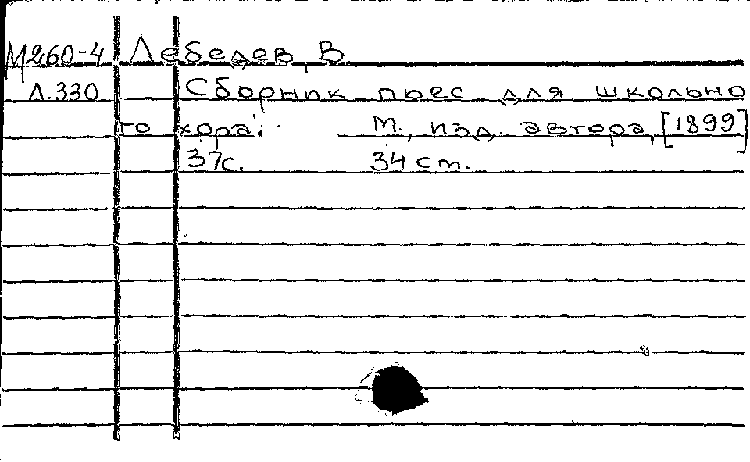 М260-4 Лебедев, В
Л.330 Сборник пьес для школьно
го хора. М., изд. автора, [1899]
37с. 34 см.